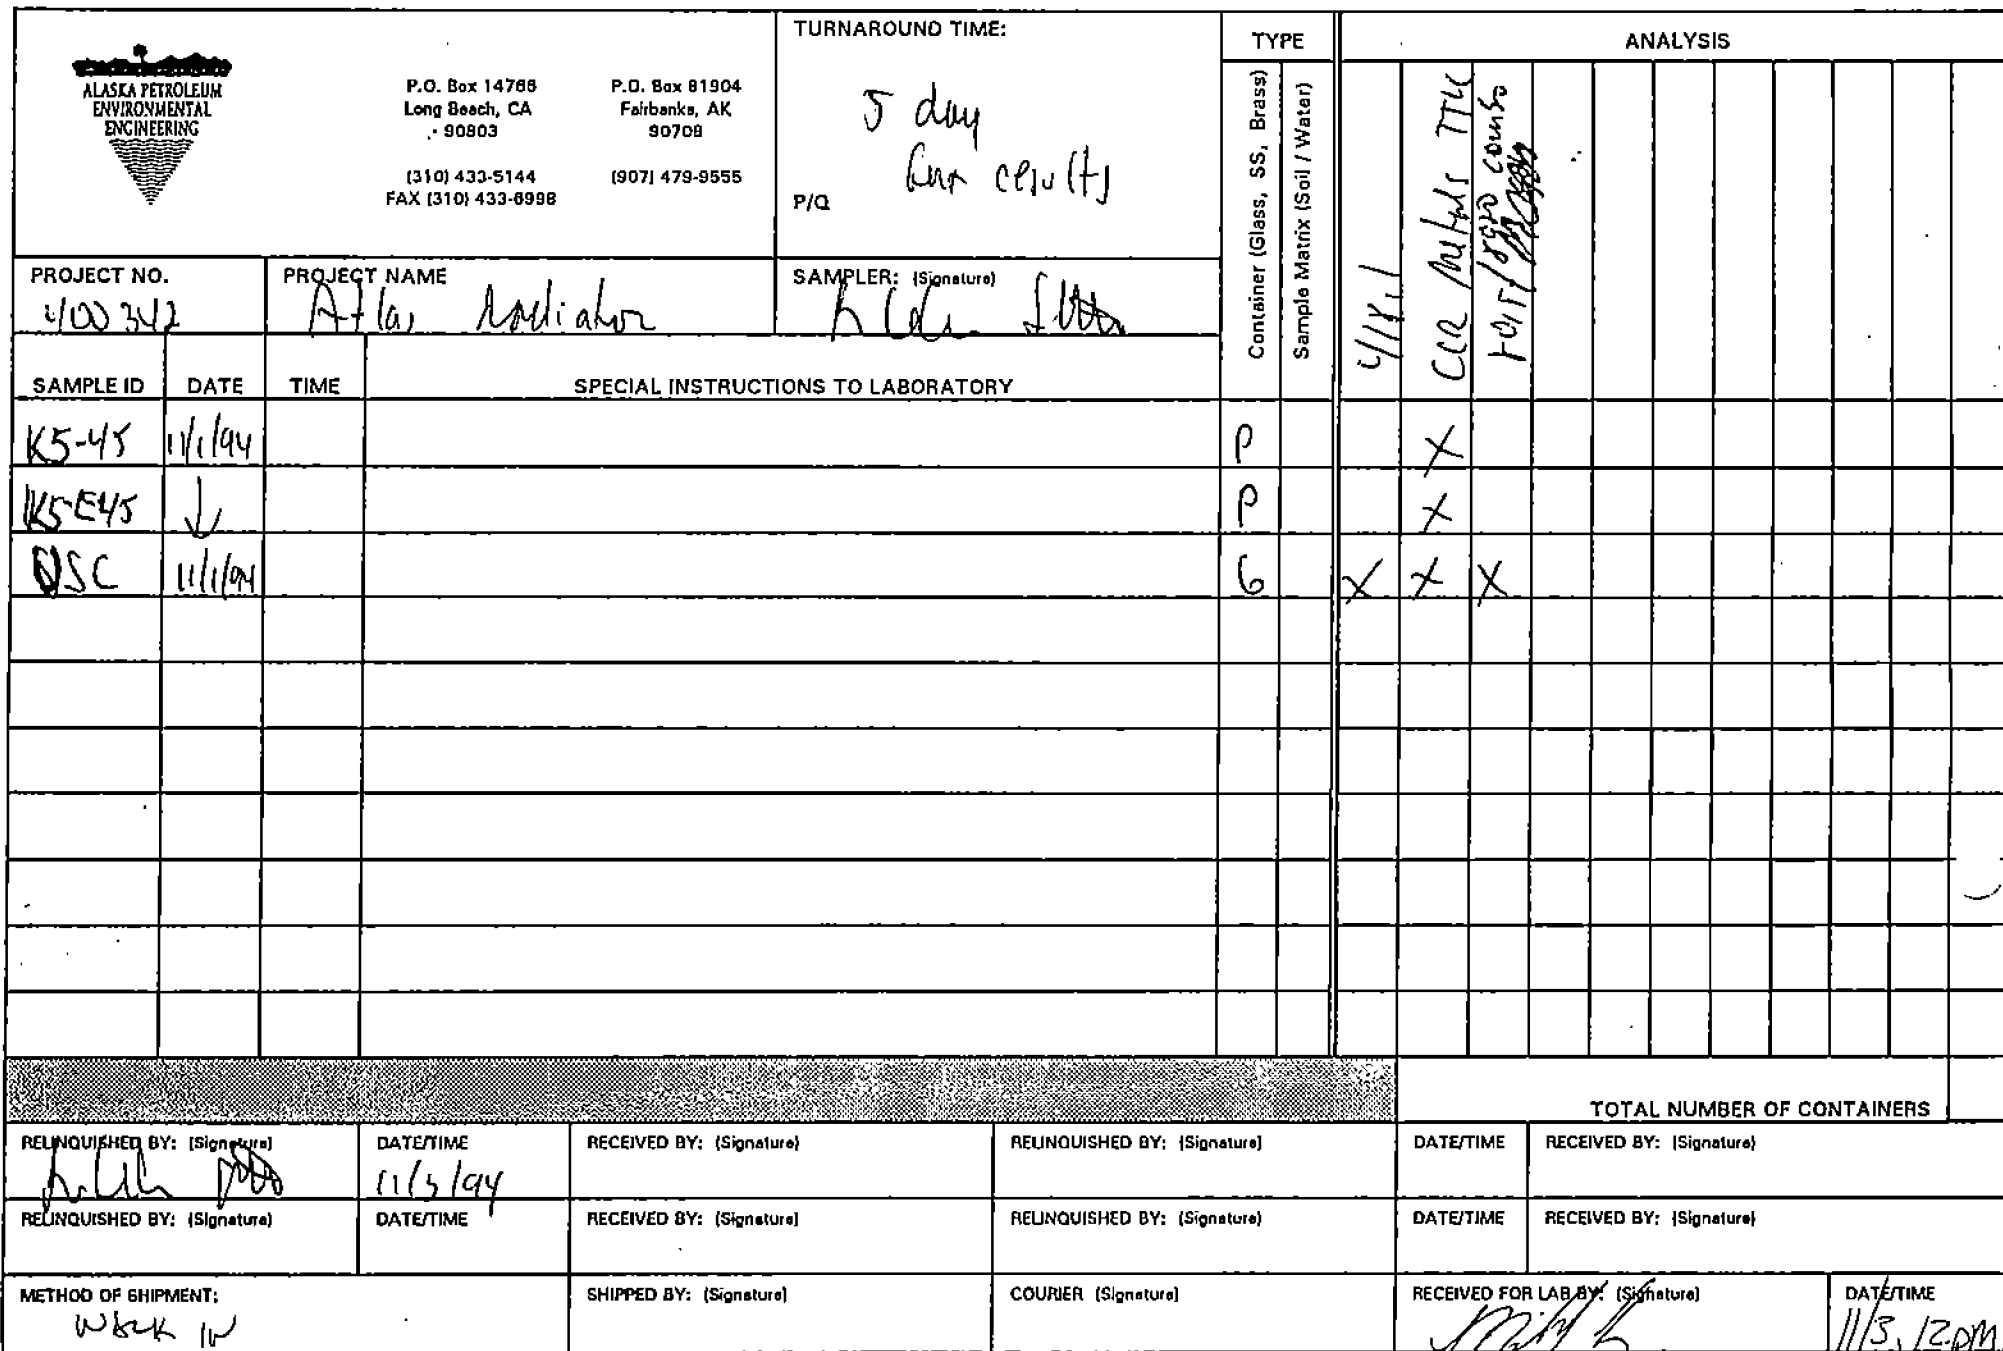 ALASKA PETROLEUM
ENVIRONMENTAL
ENGINEERING
P.O. Box 14766
Long Beach, CA
90803
(310) 433-5144
FAX (310) 433-6998
P.O. Box 81904
Fairbanks, AK
90708
(907) 479-9555
TURNAROUND TIME:
5 day
fax results
P/Q
TYPE
Container (Glass, SS, Brass)
Sample Matrix (Soil / Water)
ANALYSIS
418.1
CCR Metals TTLC
8015/8020 combo
PROJECT NO.
400342
PROJECT NAME
Atlas Radiator
SAMPLER: (Signature)
SAMPLE ID DATE TIME SPECIAL INSTRUCTIONS TO LABORATORY
K5-45 11/1/94 P X
K5-E45 ↓ P X
DSC 11/1/94 G X X X
TOTAL NUMBER OF CONTAINERS
RELINQUISHED BY: (Signature) DATE/TIME RECEIVED BY: (Signature) RELINQUISHED BY: (Signature) DATE/TIME RECEIVED BY: (Signature)
11/3/94
RELINQUISHED BY: (Signature) DATE/TIME RECEIVED BY: (Signature) RELINQUISHED BY: (Signature) DATE/TIME RECEIVED BY: (Signature)
METHOD OF SHIPMENT: SHIPPED BY: (Signature) COURIER (Signature) RECEIVED FOR LAB BY: (Signature) DATE/TIME
WALK IN 11/3, 12PM